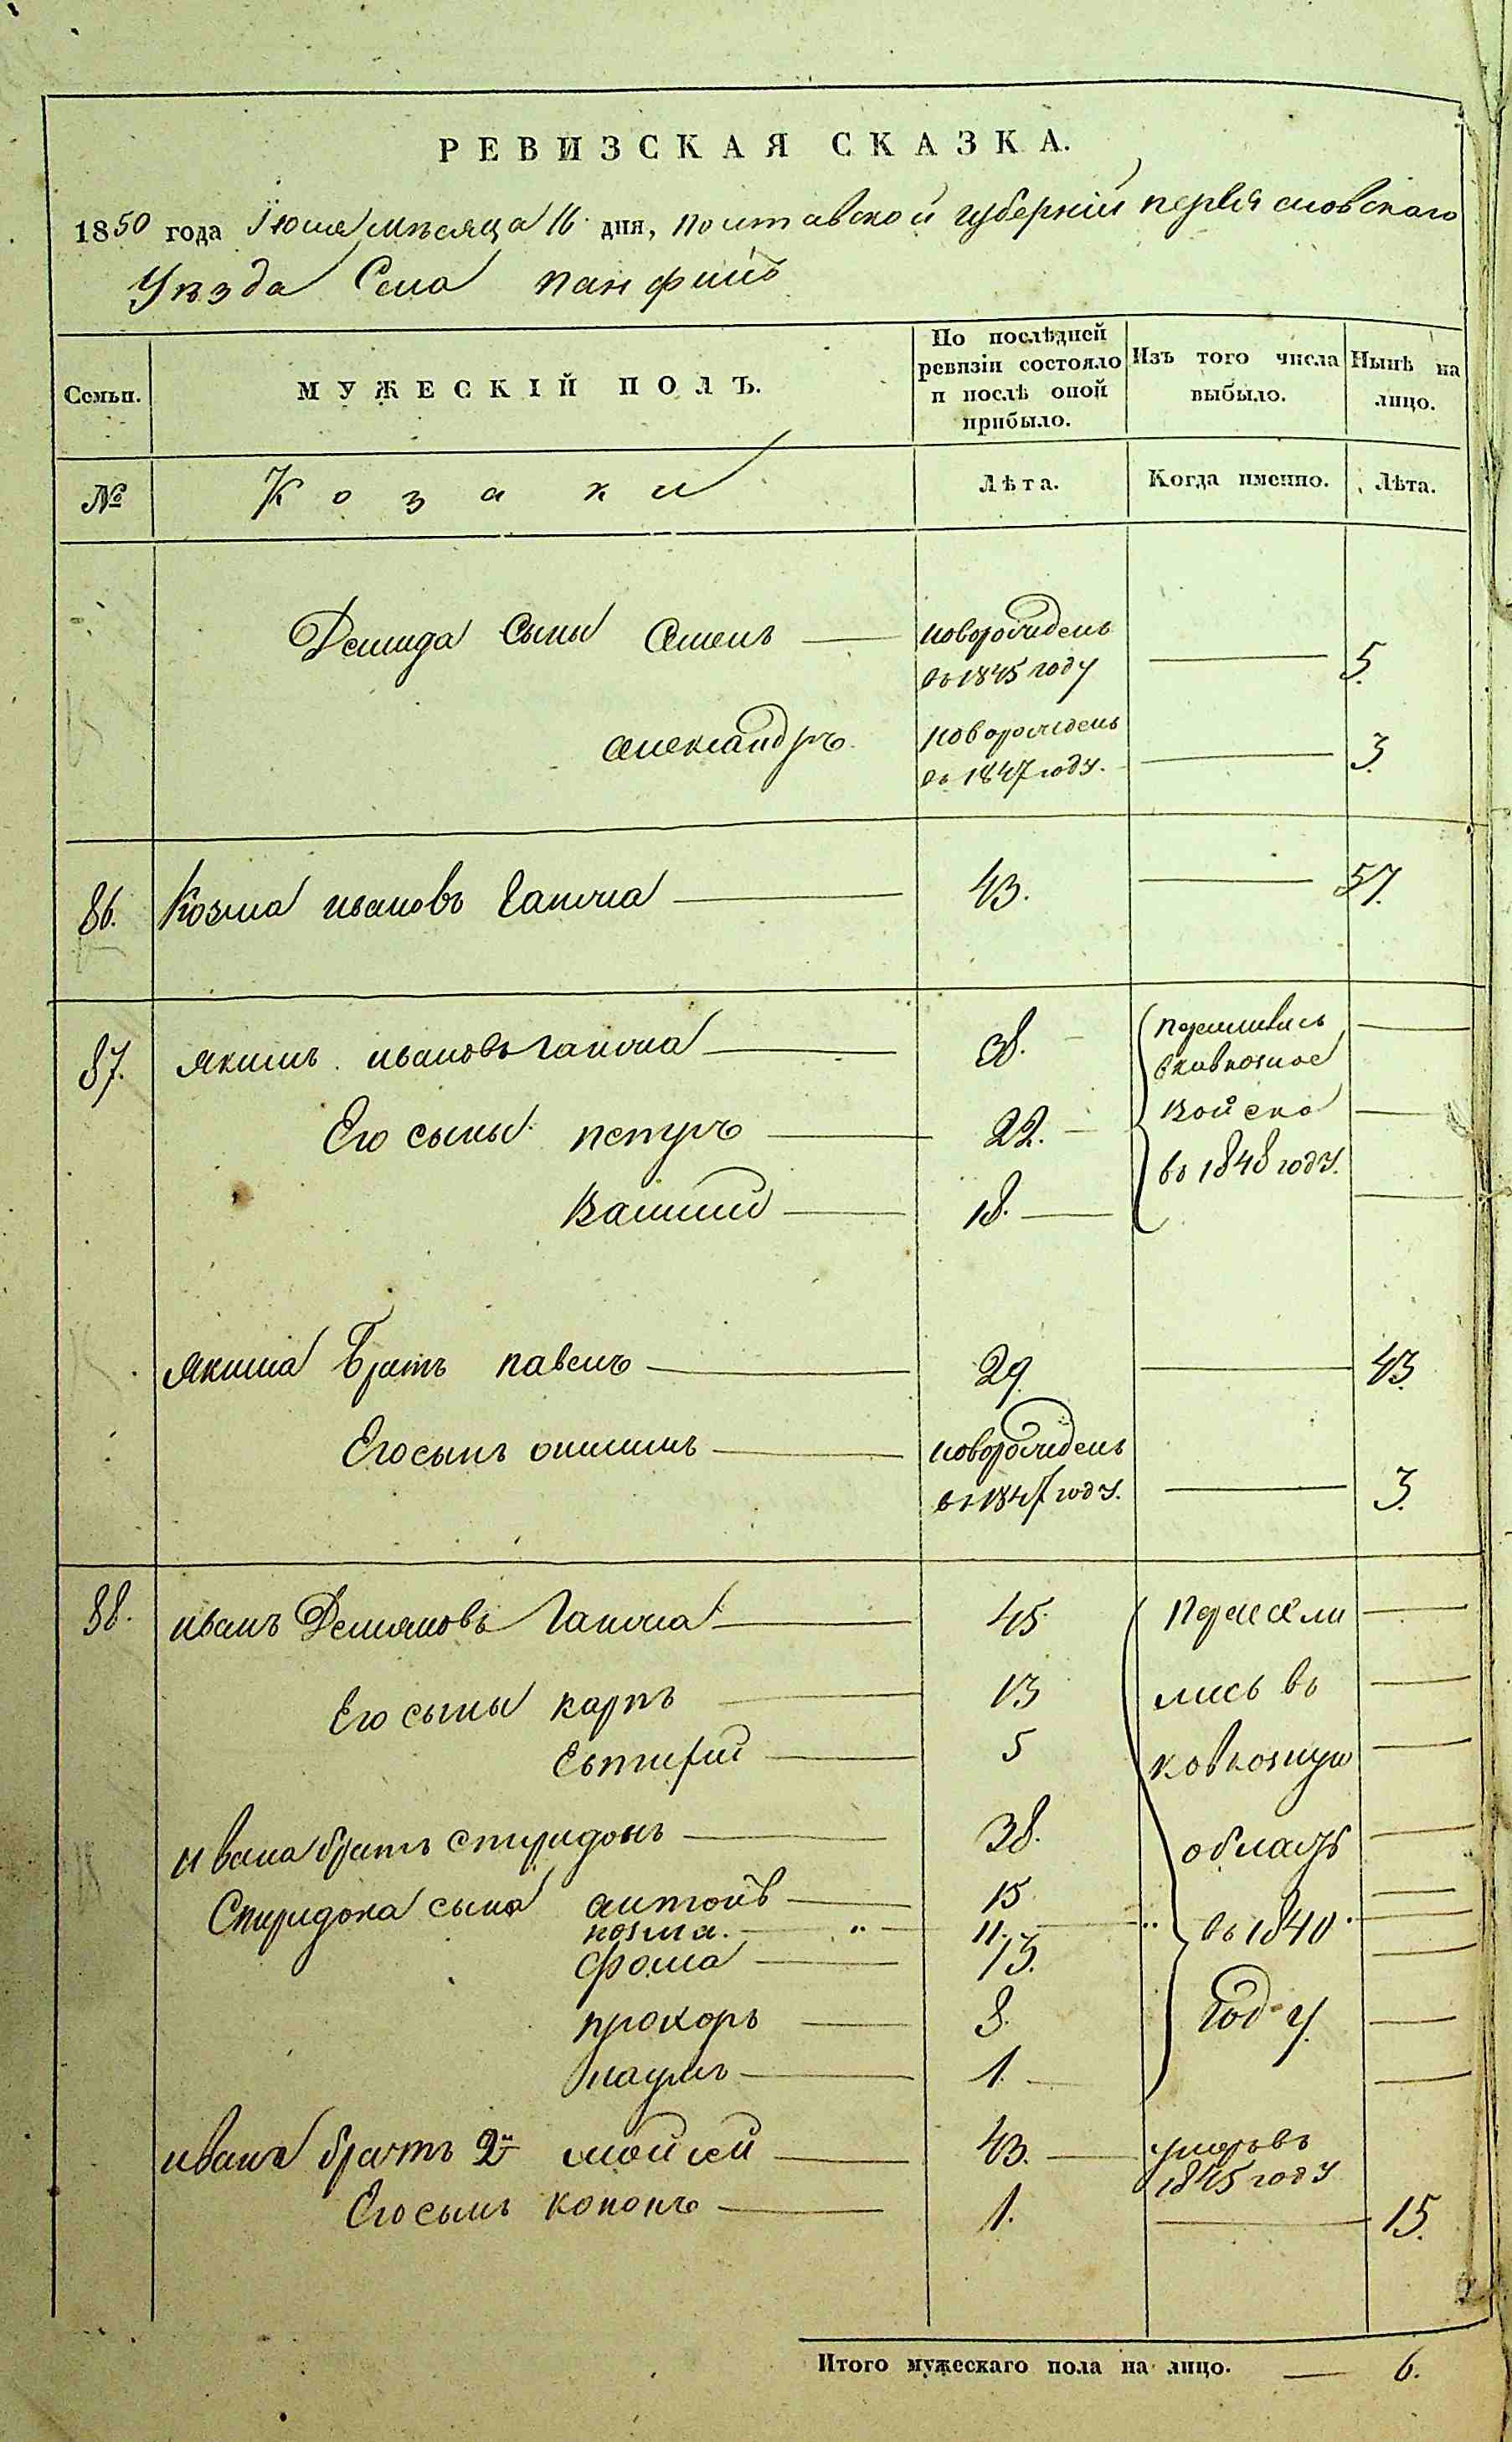 РЕВИЗСКАЯ СКАЗКА.
1850 года Июля мѣсяца 16 дня, полтавской губерніи переясловскаго
Уѣзда Села панфилъ
Семьи. МУЖЕСКІЙ ПОЛЪ. По послѣдней ревизіи состояло и послѣ оной прибыло. Изъ того числа выбыло. Нынѣ на лицо.
№ Козаки Лѣта. Когда именно. Лѣта.
Демида сыны Семенъ новорожденъ въ 1845 году 5.
александръ новорожденъ въ 1847 году. 3.
86. Козма ивановъ Гапочка 43. 57.
87. якимъ ивановъ Гапочка 38. переселились въ кавказское войско въ 1848 году.
Его сыны петръ 22.
Василий 18.
якима братъ павелъ 29. 43.
Его сынъ онисимъ новорожденъ въ 1847 году. 3.
88. иванъ Демяновъ Гапочка 45. Переселились въ кавказкую область въ 1840 году.
Его сыны карпъ 13
Евтифий 5
ивана братъ спиридонъ 38.
Спиридона сыны антонъ 15
козма. 11.
фома 13.
прохоръ 8.
наумъ 1.
ивана братъ 2й мойсей 43. умеръ въ 1845 году
Его сынъ кононъ 1. 15.
Итого мужескаго пола на лицо. 6.